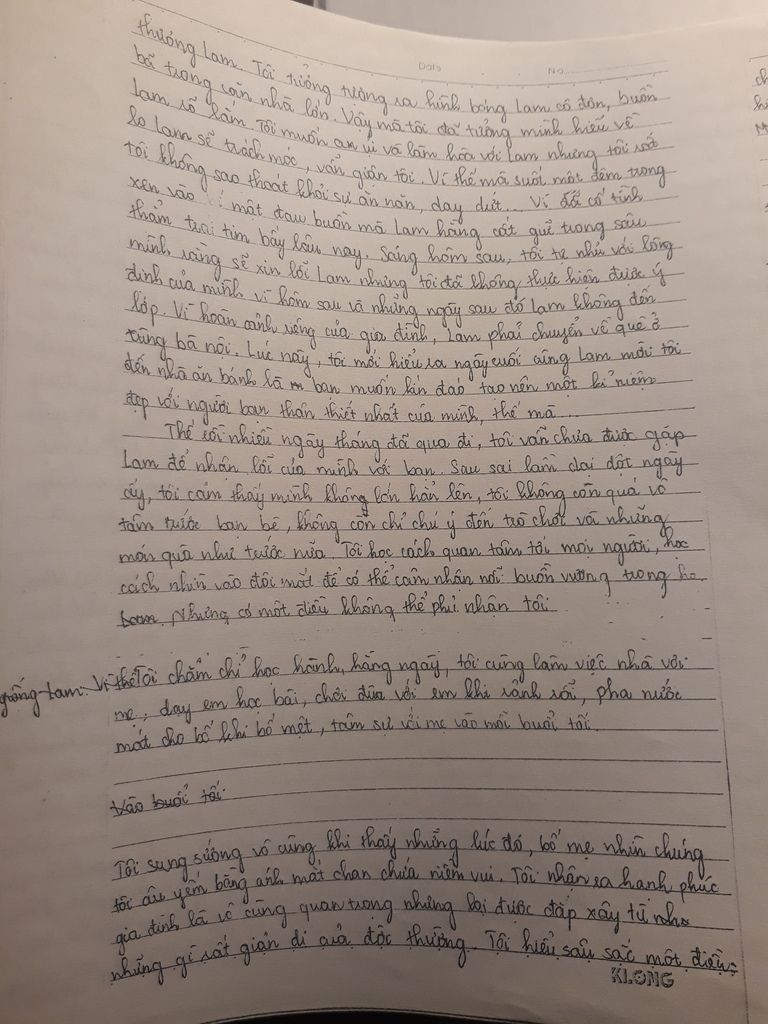 Date No.
thương Lam. Tôi tưởng tượng ra hình bóng Lam cô đơn, buồn
bã trong căn nhà lớn. Vậy mà tôi đã tưởng mình hiểu về
Lam rõ lắm. Tôi muốn an ủi và làm hòa với Lam nhưng tôi rất
lo Lam sẽ trách móc, vẫn giận tôi. Vì thế mà suốt một đêm trong
tôi không sao thoát khỏi sự ăn năn, day dứt... Vì đã cố tình
xen vào bí mật đau buồn mà Lam hằng cất giữ trong sâu
thẳm trái tim bấy lâu nay. Sáng hôm sau, tôi tự nhủ với lòng
mình rằng sẽ xin lỗi Lam nhưng tôi đã không thực hiện được ý
định của mình vì hôm sau và những ngày sau đó Lam không đến
lớp. Vì hoàn cảnh riêng của gia đình, Lam phải chuyển về quê ở
cùng bà nội. Lúc này, tôi mới hiểu ra ngày cuối cùng Lam mời tôi
đến nhà ăn bánh là bạn muốn kín đáo tạo nên một kỉ niệm
đẹp với người bạn thân thiết nhất của mình, thế mà...
Thế rồi nhiều ngày tháng đã qua đi, tôi vẫn chưa được gặp
Lam để nhận lỗi của mình với bạn. Sau sai lầm dại dột ngày
ấy, tôi cảm thấy mình không lớn hẳn lên, tôi không còn quá vô
tâm trước bạn bè, không còn chỉ chú ý đến trò chơi và những
món quà như trước nữa. Tôi học cách quan tâm tới mọi người, học
cách nhìn vào đôi mắt để có thể cảm nhận nỗi buồn vương trong họ
Nhưng có một điều không thể phủ nhận tôi
giống Lam. Vì thế Tôi chăm chỉ học hành, hằng ngày, tôi cùng làm việc nhà với
mẹ, dạy em học bài, chơi đùa với em khi rảnh rỗi, pha nước
mát cho bố khi bố mệt, tâm sự với mẹ vào mỗi buổi tối.
Vào buổi tối
Tôi sung sướng vô cùng khi thấy những lúc đó, bố mẹ nhìn chúng
tôi âu yếm bằng ánh mắt chan chứa niềm vui. Tôi nhận ra hạnh phúc
gia đình là vô cùng quan trọng nhưng lại được đắp xây từ
những gì rất giản dị của đời thường. Tôi hiểu sâu sắc một điều:
KLONG